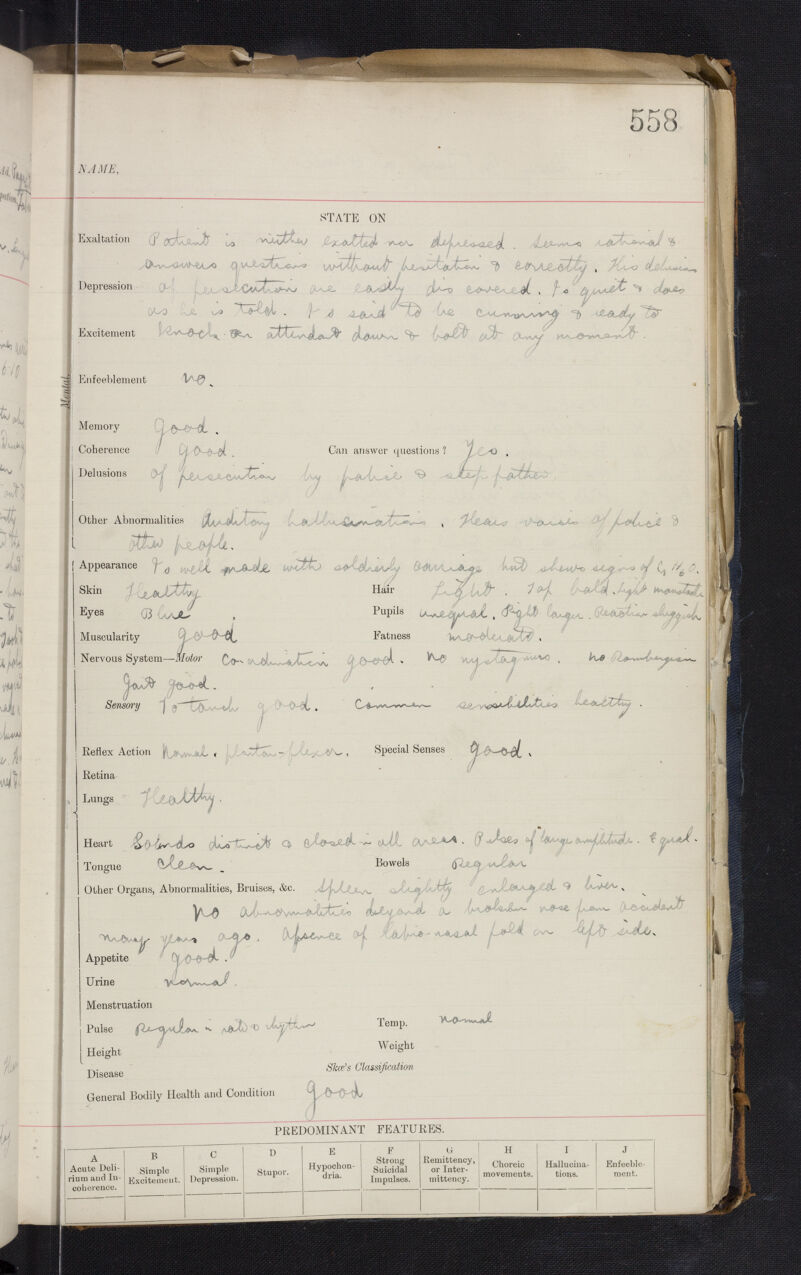 558
NAME.
STATE ON
Exaltation Patient is neither exalted nor depressed. Seems rational &
answers questions without hesitation & correctly. His delusions
Depression of persecution are easily discovered. Is quiet & does
as he is told. Is said to be cunning & ready to
Excitement knock an attendant down & bolt at any moment.
Mental.
Enfeeblement no.
Memory Good.
Coherence Good. Can answer questions? Yes.
Delusions Of persecution by police & step father.
Other Abnormalities Auditory hallucinations. Hears voices of police &
other people.
Appearance Is well made with soldierly carriage but shews signs of
Skin Healthy Hair Light. Top bald. light moustache
Eyes Blue. Pupils unequal. Right larger. Reaction sluggish
Muscularity good Fatness moderate.
Nervous System—Motor Co-ordination good. No nystagmus. No Rombergism
Gait good.
Sensory To touch good. Common sensibilities healthy.
Reflex Action Normal. plantar-flexor. Special Senses Good.
Retina
Lungs Healthy.
Heart Sounds distinct & closed in all areas. Pulses of large amplitude. Equal.
Tongue Clean. Bowels Regular
Other Organs, Abnormalities, Bruises, &c. Spleen slightly enlarged & liver.
No abnormalities beyond a broken nose from accident
many years ago. Absence of labio-nasal fold on left side.
Appetite good.
Urine normal.
Menstruation
Pulse Regular in rate & rhythm Temp. Normal
Height Weight
Disease Skæ's Classification
General Bodily Health and Condition Good
PREDOMINANT FEATURES.
A Acute Delirium and Incoherence. B Simple Excitement. C Simple Depression. D Stupor. E Hypochondria. F Strong Suicidal Impulses. G Remittency, or Intermittency. H Choreic movements. I Hallucinations. J Enfeeblement.